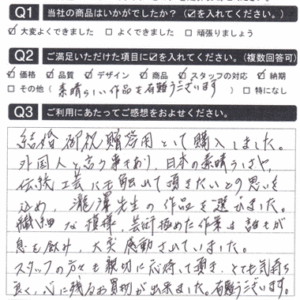 Q1 当社の商品はいかがでしたか？（☑を入れてください。）
☑大変よくできました □よくできました □頑張りましょう
Q2 ご満足いただけた項目に☑を入れてください。（複数回答可）
☑価格 ☑品質 ☑デザイン ☑商品 ☑スタッフの対応 ☑納期
□その他（素晴らしい作品を有難うございます） □特になし
Q3 ご利用にあたってご感想をおよせください。
結婚御祝贈答用として購入しました。
外国人と言う事もあり、日本の素晴らしさや、
伝統工芸にも触れて頂きたいとの思いを
込め、瀧澤先生の作品を選びました。
繊細な模様、芸術極めた作業は誰もが
息を飲み、大変感動されていました。
スタッフの方々も親切に応待して頂き、とても気持ち
良く、心に残るお買物が出来ました。有難うございます。